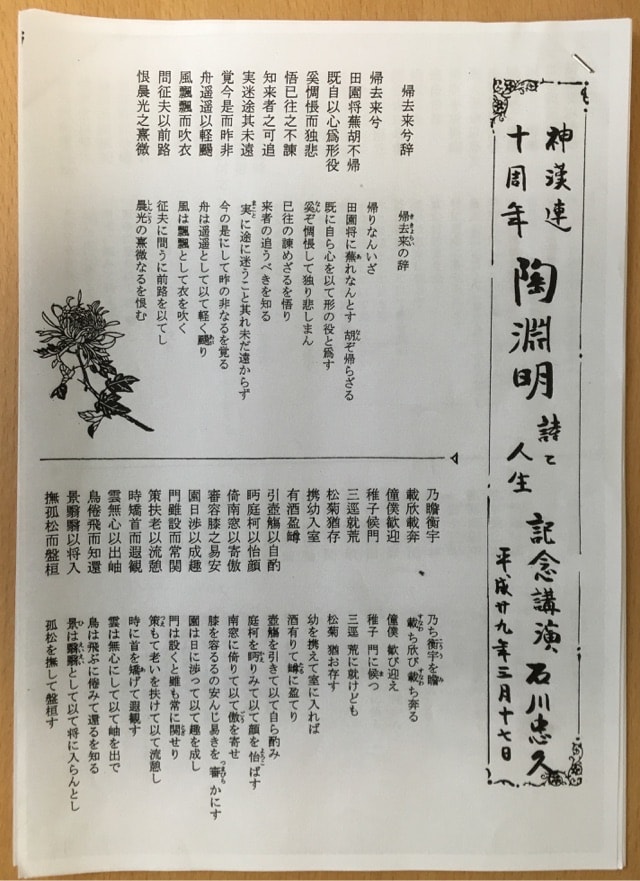 神漢連
十周年
陶淵明
詩と
人生
記念講演
石川忠久
平成廿九年三月十七日
帰去来兮辞
帰去来兮
田園将蕪胡不帰
既自以心爲形役
奚惆悵而独悲
悟已往之不諫
知来者之可追
実迷途其未遠
覚今是而昨非
舟遥遥以軽颺
風飄飄而吹衣
問征夫以前路
恨晨光之熹微
帰去来の辞
帰りなんいざ
田園将に蕪れなんとす 胡ぞ帰らざる
既に自ら心を以て形の役と爲す
奚ぞ惆悵して独り悲しまん
已往の諫めざるを悟り
来者の追うべきを知る
実に途に迷うこと其れ未だ遠からず
今の是にして昨の非なるを覚る
舟は遥遥として以て軽く颺り
風は飄飄として衣を吹く
征夫に問うに前路を以てし
晨光の熹微なるを恨む
乃瞻衡宇
載欣載奔
僮僕歓迎
稚子候門
三逕就荒
松菊猶存
携幼入室
有酒盈罇
引壺觴以自酌
眄庭柯以怡顔
倚南窓以寄傲
審容膝之易安
園日渉以成趣
門雖設而常関
策扶老以流憩
時矯首而遐観
雲無心以出岫
鳥倦飛而知還
景翳翳以将入
撫孤松而盤桓
乃ち衡宇を瞻
載ち欣び載ち奔る
僮僕 歓び迎え
稚子 門に候つ
三逕 荒に就けども
松菊 猶お存す
幼を携えて室に入れば
酒有りて罇に盈てり
壺觴を引きて以て自ら酌み
庭柯を眄みて以て顔を怡ばす
南窓に倚りて以て傲を寄せ
膝を容るるの安んじ易きを審かにす
園は日に渉って以て趣を成し
門は設くと雖も常に関せり
策もて老いを扶けて以て流憩し
時に首を矯げて遐観す
雲は無心にして以て岫を出で
鳥は飛ぶに倦みて還るを知る
景は翳翳として以て将に入らんとし
孤松を撫して盤桓す